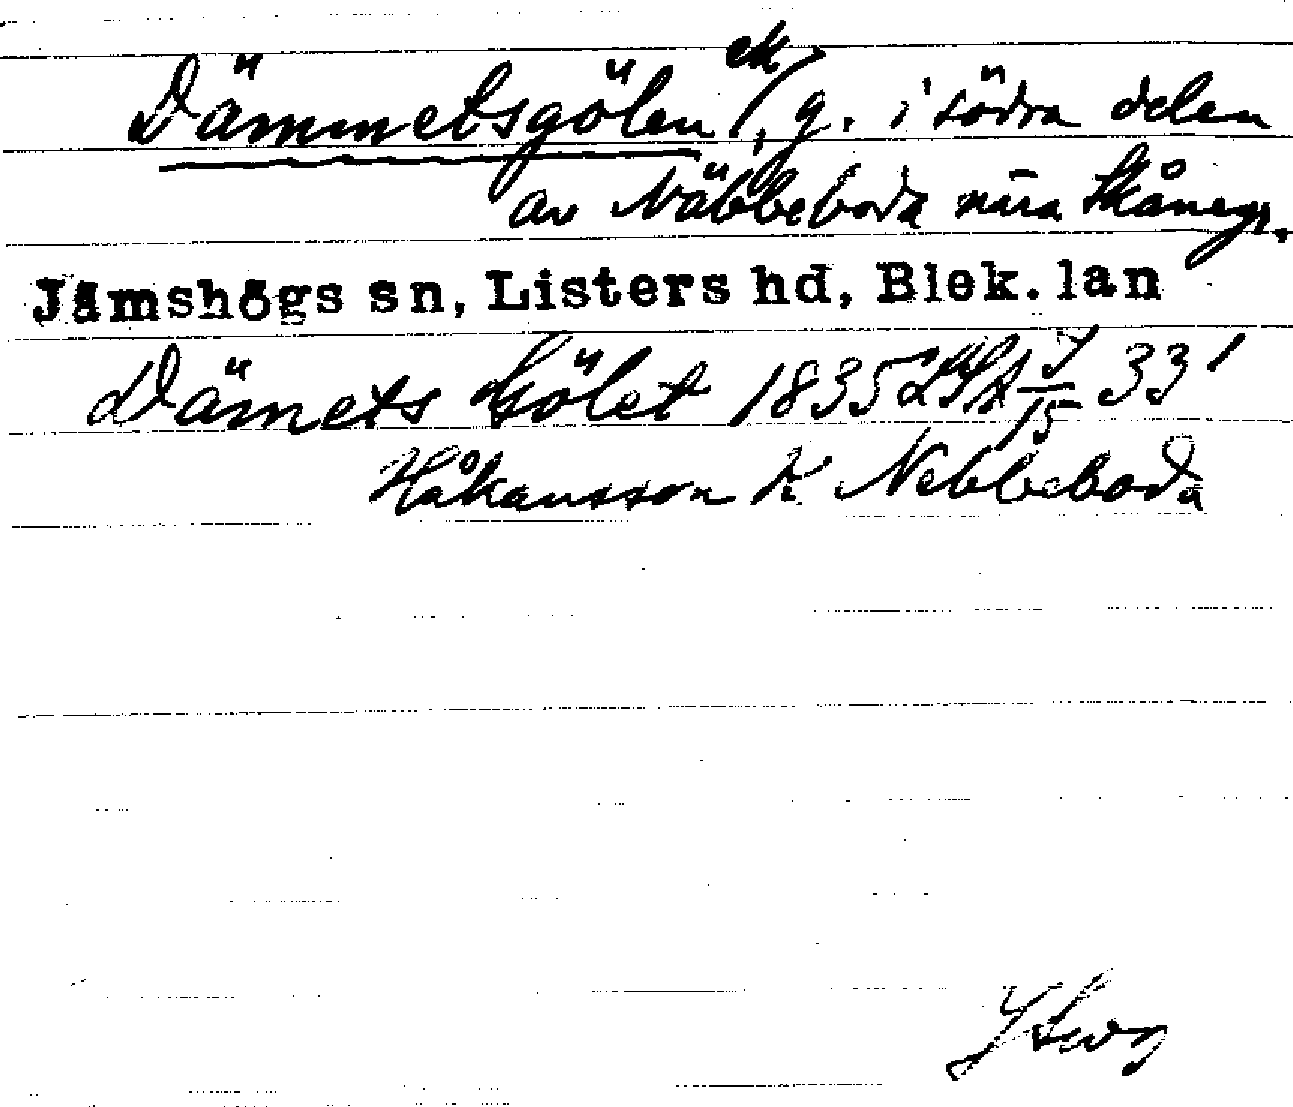 Dämmetsgölen ek, g. i södra delen
av Näbbeboda nära Skånegr.
Jämshögs sn, Listers hd, Blek. län
Dämets Gölet 1835 LSA J/15 33'
Håkansson K Nebbeboda